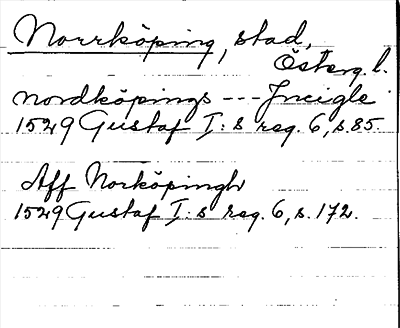 Norrköping, stad,
Österg. l.
nordköpings --- Jncigle
1529 Gustaf I:s reg. 6, s. 85.
Aff Norköpingh
1529 Gustaf I:s reg. 6, s. 172.